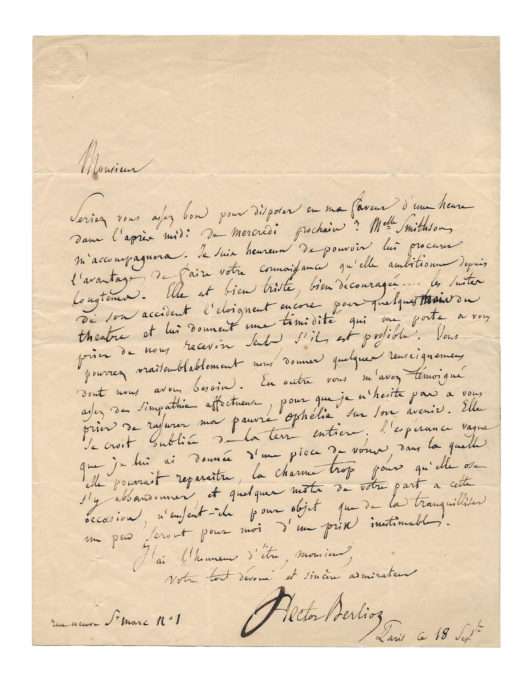 Monsieur
Seriez vous assez bon pour disposer en ma faveur d'une heure
dans l'après midi de mercredi prochain ? Melle Smithson
m'accompagnera. Je suis heureux de pouvoir lui procurer
l'avantage de faire votre connaissance qu'elle ambitionne depuis
longtems. Elle est bien triste, bien découragée.... les suites
de son accident l'éloignent encore pour quelques mois du
théatre et lui donnent une timidité qui me porte a vous
prier de nous recevoir seuls s'il est possible. Vous
pourrez vraisemblablement nous donner quelques renseignemens
dont nous avons besoin. En outre vous m'avez témoigné
assez de sympathie affectueuse, pour que je n'hésite pas a vous
prier de rassurer ma pauvre Ophélia sur son avenir. Elle
se croit oubliée de la terre entière. L'espérance vague
que je lui ai donnée d'une pièce de vous, dans la quelle
elle pourrait reparaitre, la charme trop pour qu'elle ose
s'y abandonner et quelques mots de votre part a cette
occasion, n'eussent-ils pour objet que de la tranquilliser
un peu seront pour moi d'un prix inestimable.
J'ai l'honneur d'être, monsieur,
votre tout dévoué et sincère admirateur
Hector Berlioz
rue neuve St marc n° 1
Paris ce 18 Sept